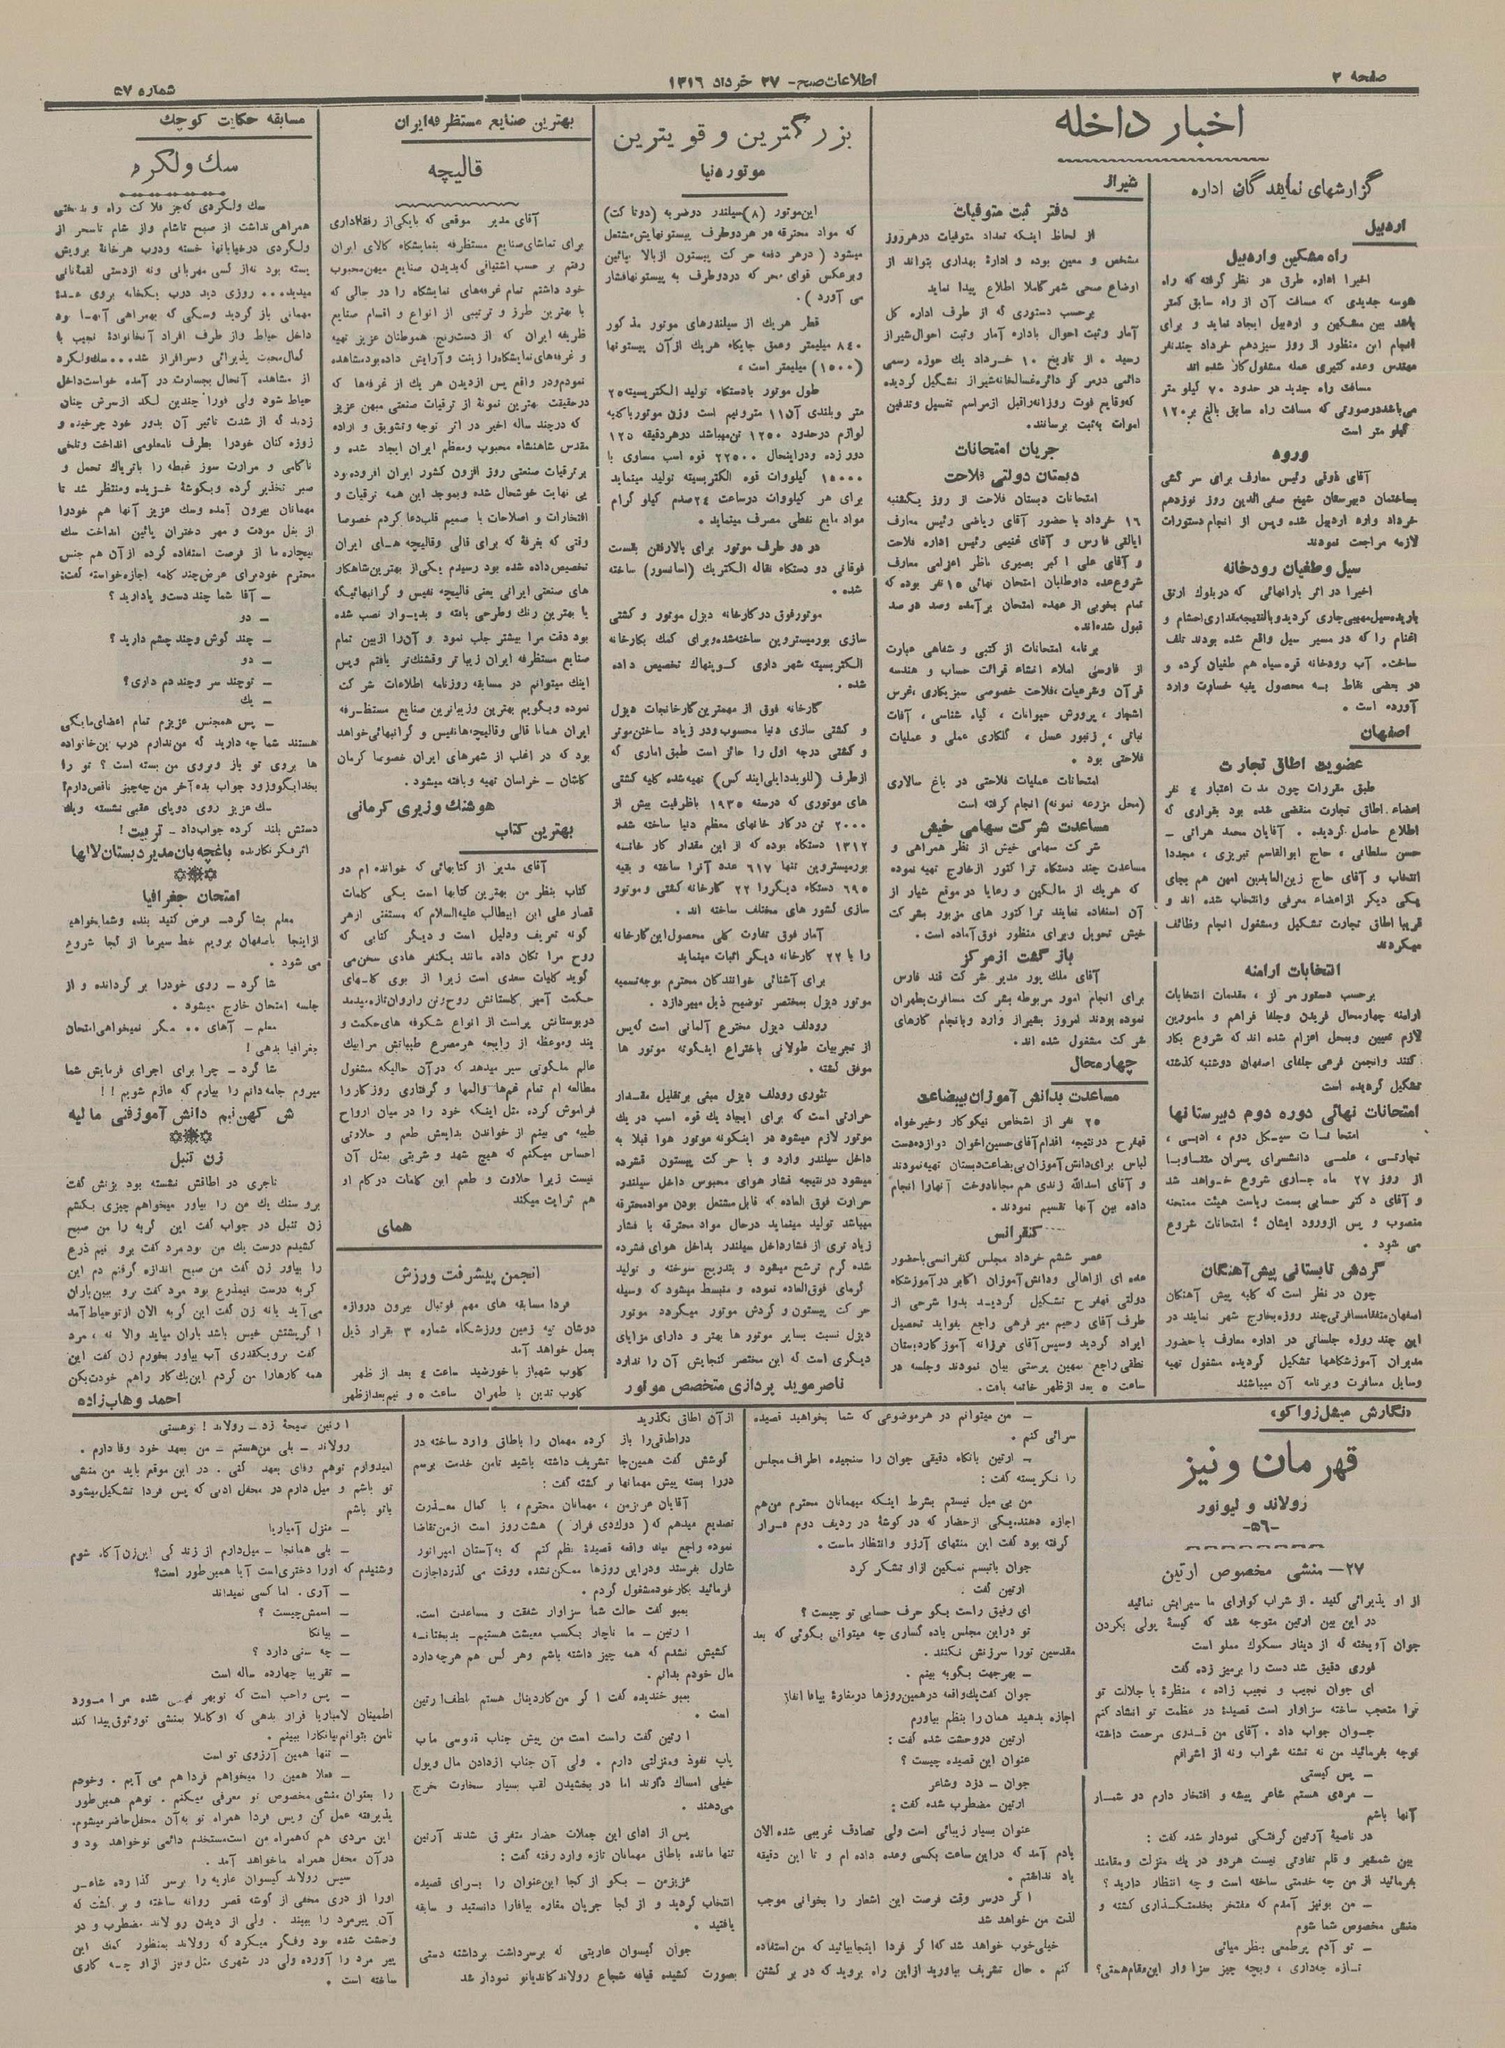 صفحه ۲
اطلاعات صبح - ۲۷ خرداد ۱۳۱۶
شماره ۵۷
اخبار داخله
گزارشهای نمایندگان اداره
اردبیل
راه مشکین و اردبیل
اخیرا اداره طرق در نظر گرفته که راه
شوسه جدیدی که مسافت آن از راه سابق کمتر
باشد بین مشکین و اردبیل ایجاد نماید و برای
انجام این منظور از روز سیزدهم خرداد چند نفر
مهندس وعده کثیری عمله مشغول کار شده اند
مسافت راه جدید در حدود ۷۰ کیلو متر
می‌باشد درصورتی که مسافت راه سابق بالغ بر ۱۲۰
کیلو متر است
ورود
آقای ذوقی رئیس معارف برای سر کشی
بساختمان دبیرستان شیخ صفی الدین روز نوزدهم
خرداد وارد اردبیل شده و پس از انجام دستورات
لازمه مراجعت نمودند
سیل و طغیان رودخانه
اخیرا در اثر بارانهائی که دربلوک ارتق
باریده سیل مهیبی جاری گردید و بالنتیجه مقداری احشام و
اغنام را که در مسیر سیل واقع شده بودند تلف
ساخت. آب رودخانه قره سیاه هم طغیان کرده و
در بعضی نقاط به محصول پنبه خسارت وارد
آورده است .
اصفهان
عضویت اطاق تجارت
طبق مقررات چون مدت اعتبار ٤ نفر
اعضاء اطاق تجارت منقضی شده بود بقراری که
اطلاع حاصل گردیده . آقایان محمد هراتی -
حسن سلطانی ، حاج ابوالقاسم تبریزی ، مجددا
انتخاب و آقای حاج زین‌العابدین امین هم بجای
یکی دیگر از اعضاء معرفی وانتخاب شده اند و
قریبا اطاق تجارت تشکیل ومشغول انجام وظائف
میگردند
انتخابات ارامنه
برحسب دستور مرکز ، مقدمات انتخابات
ارامنه چهارمحال فریدن وجلفا فراهم و مامورین
لازم تعیین وبمحل اعزام شده اند که شروع بکار
کنند وانجمن فرعی جلفای اصفهان دوشنبه گذشته
تشکیل گردیده است
امتحانات نهائی دوره دوم دبیرستانها
امتحانات سیکل دوم ، ادبی ،
تجارتی ، علمی دانشسرای پسران متناوبا
از روز ۲۷ ماه جاری شروع خواهد شد
و آقای دکتر حسابی بسمت ریاست هیئت ممتحنه
منصوب و پس از ورود ایشان ؛ امتحانات شروع
می شود .
گردش تابستانی پیش‌آهنگان
چون در نظر است که کلیه پیش آهنگان
اصفهان متفقا مسافرتی چند روزه بخارج شهر نمایند در
این چند روزه جلساتی در اداره معارف با حضور
مدیران آموزشگاهها تشکیل گردیده مشغول تهیه
وسایل مسافرت وبرنامه آن میباشند
شیراز
دفتر ثبت متوفیات
از لحاظ اینکه تعداد متوفیات درهرروز
مشخص و معین بوده و ادارهٔ بهداری بتواند از
اوضاع صحی شهر کاملا اطلاع پیدا نماید
برحسب دستوری که از طرف اداره کل
آمار وثبت احوال باداره آمار وثبت احوال شیراز
رسید . از تاریخ ۱۰ خرداد یک حوزه رسمی
دائمی درمرکز دائره غسالخانه شیراز تشکیل گردیده
که وقایع فوت روزانه راقبل ازمراسم تغسیل وتدفین
اموات به ثبت برسانند.
جریان امتحانات
دبستان دولتی فلاحت
امتحانات دبستان فلاحت از روز یکشنبه
۱۶ خرداد با حضور آقای ریاضی رئیس معارف
ایالتی فارس و آقای غنیمی رئیس اداره فلاحت
و آقای علی اکبر بصیری ناظر اعزامی معارف
شروع‌عده داوطلبان امتحان نهائی ۱۵ نفر بوده که
تمام بخوبی از عهده امتحان برآمده وصد در صد
قبول شده‌اند.
برنامه امتحانات از کتبی و شفاهی عبارت
از فارسی املاء انشاء قرائت حساب و هندسه
قرآن وشرعیات ،فلاحت خصوصی سبزیکاری ،غرس
اشجار ، پرورش حیوانات ، گیاه شناسی ، آفات
نباتی ، زنبور عسل ، گلکاری عملی و عملیات
فلاحتی بود .
امتحانات عملیات فلاحتی در باغ سالاری
(محل مزرعه نمونه) انجام گرفته است
مساعدت شرکت سهامی خیش
شرکت سهامی خیش از نظر همراهی و
مساعدت چند دستگاه تراکتور ازخارج تهیه نموده
که هریک از مالکین و رعایا در موقع شیار از
آن استفاده نمایند تراکتور های مزبور بشرکت
خیش تحویل وبرای منظور فوق آماده است .
بازگشت ازمرکز
آقای ملک پور مدیر شرکت قند فارس
برای انجام امور مربوطه بشرکت مسافرت بطهران
نموده بودند امروز بشیراز وارد وبانجام کارهای
شرکت مشغول شده اند.
چهارمحال
مساعدت بدانش آموزان بیبضاعت
۲۵ نفر از اشخاص نیکوکار وخیرخواه
قهفرخ درنتیجه اقدام آقای حسین اخوان دوازده دست
لباس برای دانش آموزان بی بضاعت دبستان تهیه نمودند
و آقای اسدالله زندی هم مجانا دوخت آنهارا انجام
داده بین آنها تقسیم نمودند.
کنفرانس
عصر ششم خرداد مجلس کنفرانسی باحضور
عده ای ازاهالی ودانش آموزان اکابر درآموزشگاه
دولتی قهفرخ تشکیل گردید بدوا شرحی از
طرف آقای رحیم میرفرهی راجع بفواید تحصیل
ایراد گردید وسپس آقای فرزانه آموزگاردبستان
نطقی راجع بمیهن پرستی بیان نمودند وجلسه در
ساعت ۵ بعد ازظهر خاتمه یافت.
بزرگترین و قویترین
موتور دنیا
این موتور (۸) سیلندر دوضربه (دوتاکت)
که مواد محترقه در هردوطرف پیستونهایش مشتعل
میشود ( درهر دفعه حرکت پیستون ازبالا بپائین
وبرعکس قوای محرکه دردوطرف به پیستونها فشار
می آورد ) .
قطر هریک از سیلندرهای موتور مذکور
۸٤۰ میلیمتر وعمق جایگاه هریک ازآن پیستونها
(۱۵۰۰) میلیمتر است ،
طول موتور بادستگاه تولید الکتریسیته ۲۵
متر وبلندی آن ۱۱ متر ونیم است وزن موتور باکلیه
لوازم درحدود ۱۲۵۰ تن میباشد درهردقیقه ۱۲۵
دور زده ودراینحال ۲۲۵۰۰ قوه اسب مساوی با
۱۵۰۰۰ کیلووات قوه الکتریسیته تولید مینماید
برای هر کیلووات درساعت ۲٤صدم کیلو گرام
مواد مایع نفطی مصرف مینماید .
در دو طرف موتور برای بالارفتن بقسمت
فوقانی دو دستگاه نقاله الکتریک (آسانسور) ساخته
شده .
موتورفوق در کارخانه دیزل موتور و کشتی
سازی بورمیستروین ساخته‌شده وبرای کمک بکارخانه
الکتریسیته شهرداری کوپنهاک تخصیص داده
شده .
کارخانه فوق از مهمترین کارخانجات دیزل
و کشتی سازی دنیا محسوب ودر زیاد ساختن موتور
و کشتی درجه اول را حائز است طبق اماری که
ازطرف (للوید دایلی ایندکس) تهیه شده کلیه کشتی
های موتوری که درسنه ۱۹۳۵ باظرفیت بیش از
۲۰۰۰ تن درکار خانهای معظم دنیا ساخته شده
۱۳۱۲ دستگاه بوده که از این مقدار کارخانه
بورمیستروین تنها ۶۱۷ عدد آنرا ساخته و بقیه
۶۹۵ دستگاه دیگررا ۲۲ کارخانه کشتی وموتور
سازی کشور های مختلف ساخته اند .
آمار فوق تفاوت کلی محصول این کارخانه
را با ۲۲ کارخانه دیگر اثبات مینماید
برای آشنائی خوانندگان محترم بوجه‌تسمیه
موتور دیزل بمختصر توضیح ذیل میپردازد .
رودلف دیزل مخترع آلمانی است که‌پس
از تجربیات طولانی باختراع اینگونه موتور ها
موفق گشته .
تئوری رودلف دیزل مبنی برتقلیل مقدار
حرارتی است که برای ایجاد یک قوه اسب دریک
موتور لازم میشود در اینگونه موتور هوا قبلا به
داخل سیلندر وارد و با حرکت پیستون فشرده
میشود درنتیجه فشار هوای محبوس داخل سیلندر
حرارت فوق العاده که قابل مشتعل بودن موادمحترقه
میباشد تولید مینماید درحال مواد محترقه با فشار
زیاد تری از فشارداخل سیلندر بداخل هوای فشرده
شده گرم ترشح میشود و بتدریج سوخته و تولید
گرمای فوق‌العاده نموده و منبسط میشود که وسیله
حرکت پیستون و گردش موتور میگردد موتور
دیزل نسبت بسایر موتور ها بهتر و دارای مزایای
دیگری است که این مختصر گنجایش آن را ندارد
ناصر موبد پردازی متخصص موتور
بهترین صنایع مستظرفه ایران
قالیچه
آقای مدیر موقعی که بایکی از رفقا اداری
برای تماشای صنایع مستظرفه بنمایشگاه کالای ایران
رفتم بر حسب اشتیاقی که بدیدن صنایع میهن محبوب
خود داشتم تمام غرفه‌های نمایشگاه را در حالی که
با بهترین طرز و ترتیبی از انواع و اقسام صنایع
ظریفه ایران که از دست‌رنج هموطنان عزیز تهیه
وغرفه‌های نمایشگاه را زینت و آرایش داده بود مشاهده
نمودم ودر واقع پس ازدیدن هریک از غرفه‌ها که
درحقیقت بهترین نمونهٔ از ترقیات صنعتی میهن عزیز
که درچند ساله اخیر در اثر توجه وتشویق و اراده
مقدس شاهنشاه محبوب ومعظم ایران ایجاد شده و
برترقیات صنعتی روز افزون کشور ایران افزوده بود
بی نهایت خوشحال شده وبموجد این همه ترقیات و
افتخارات و اصلاحات با صمیم قلب دعا کردم خصوصا
وقتی که بغرفهٔ که برای قالی وقالیچه های ایران
تخصیص داده شده بود رسیدم یکی از بهترین شاهکار
های صنعتی ایرانی یعنی قالیچه نفیس و گرانبهائیکه
با بهترین رنگ وطرحی بافته و بدیوار نصب شده
بود دقت مرا بیشتر جلب نمود و آن‌را ازبین تمام
صنایع مستظرفه ایران زیبا تر وقشنگ‌تر یافتم وپس
اینک میتوانم در مسابقه روزنامه اطلاعات شرکت
نموده وبگویم بهترین وزیباترین صنایع مستظرفه
ایران همانا قالی وقالیچه‌ها نفیس و گرانبهائی خواهد
بود که در اغلب از شهرهای ایران خصوصا کرمان
کاشان - خراسان تهیه وبافته میشود .
هوشنگ وزیری کرمانی
بهترین کتاب
آقای مدیر از کتابهائی که خوانده ام دو
کتاب بنظر من بهترین کتابها است یکی کلمات
قصار علی ابن ابیطالب علیه‌السلام که مستغنی از هر
گونه تعریف ودلیل است و دیگر کتابی که
روح مرا تکان داده مانند یکنفر هادی سخن می
گوید کلیات سعدی است زیرا از بوی گلهای
حکمت آمیز گلستانش روح وتن را روان تازه میدمد
دربوستانش پراست از انواع شکوفه های حکمت و
پند وموعظه از رایحه هر مصرع طیباتش مرا بیک
عالم ملکوتی سیر میدهد که درآن حالیکه مشغول
مطالعه ام تمام غم‌ها والمها و گرفتاری روزگار را
فراموش کرده مثل اینکه خود را در میان ارواح
طیبه می بینم از خواندن بدایعش طعم و حلاوتی
احساس میکنم که هیچ شهد و شربتی بمثل آن
نیست زیرا حلاوت و طعم این کلمات درکام او
هم ثرایت میکند
همای
انجمن پیشرفت ورزش
فردا مسابقه های مهم فوتبال بیرون دروازه
دوشان تپه زمین ورزشگاه شماره ۳ بقرار ذیل
بعمل خواهد آمد
کلوب شهباز با خورشید ساعت ٤ بعد از ظهر
کلوب تدین با طهران ساعت ۵ و نیم بعد از ظهر
مسابقه حکایت کوچک
سک ولگرد
سک ولگردی که جز فلاکت راه و بدبختی
همراهی نداشت از صبح تاشام واز شام تاسحر از
ولگردی درخیابانها خسته ودرب هرخانهٔ برویش
بسته بود نه از کسی مهربانی ونه ازدستی لقمهٔ نانی
میدید... روزی دید درب یکخانه بروی عدهٔ
مهمانی باز گردید وسکی که بهمراهی آنها بود
داخل حیاط واز طرف افراد آنخانوادهٔ نجیب با
کمال محبت پذیرائی وسرافراز شد....سک ولگرد
از مشاهده آنحال بجسارت در آمده خواست داخل
حیاط شود ولی فوراً چندین لگد ازسرش چنان
زدند که از شدت تاثیر آن بدور خود چرخیده و
زوزه کنان خودرا بطرف نامعلومی انداخت وتلخی
ناکامی و مرارت سوز غبطه را باتریاک تحمل و
صبر تخدیر کرده وبگوشهٔ خزیده ومنتظر شد تا
مهمانان بیرون آمده وسک عزیز آنها هم خودرا
از بغل مودت و مهر دختران پائین انداخت سک
بیچاره ما از فرصت استفاده کرده از آن هم جنس
محترم خود برای عرض چند کلمه اجازه خواسته گفت:
- آقا شما چند دست و پا دارید ؟
- دو
- چند گوش وچند چشم دارید ؟
- دو
- توچند سر و چند دم داری؟
- یک
- پس همجنس عزیزم تمام اعضای ما یکی
هستند شما چه دارید که من ندارم درب این خانواده
ها بروی تو باز و بروی من بسته است ؟ تو را
بخدا بگو وزود جواب بده آخر من چه‌چیز ناقص دارم؟
سک عزیز روی دوپای عقبی نشسته ویک
دستش بلند کرده جواب داد- تربیت !
اثر فکر نگارنده باغچه‌بان مدیر دبستان لالها
امتحان جغرافیا
معلم بشاگرد- فرض کنید بنده وشما بخواهیم
ازاینجا باصفهان برویم خط سیرما از کجا شروع
می شود .
شاگرد - روی خودرا برگردانده و از
جلسه امتحان خارج میشود .
معلم - آهای .. مگر نمیخواهی امتحان
جغرافیا بدهی !
شاگرد - چرا برای اجرای فرمایش شما
میروم جامه‌دانم را بیارم که عازم شویم !!
ش کهن‌بم دانش آموز فنی مالیه
زن تنبل
تاجری در اطاقش نشسته بود بزنش گفت
برو سنک یک من را بیاور میخواهم چیزی بکشم
زن تنبل در جواب گفت این گربه را من صبح
کشیدم درست یک من بود مرد گفت برو نیم ذرع
را بیاور زن گفت من صبح اندازه گرفتم دم این
گربه درست نیمذرع بود مرد گفت برو ببین باران
می‌آید یانه زن گفت این گربه الان ازتوحیاط آمد
اگر پشتش خیس باشد باران میاید والا نه ، مرد
گفت برو یکقدری آب بیاور بخورم زن گفت این
همه کارهارا من کردم این یک کار راهم خودت بکن
احمد وهاب‌زاده
«نگارش میشل زواکو»
قهرمان ونیز
رولاند و لئونور
-۵۶-
۲۷- منشی مخصوص ارتین
از او پذیرائی کنید . از شراب گوارای ما سیرابش نمائید
در این بین ارتین متوجه شد که کیسهٔ پولی بگردن
جوان آویخته که از دینار مسکوک مملو است
فوری دقیق شد دست را برمیز زده گفت
ای جوان نجیب و نجیب زاده ، منظرهٔ با جلالت تو
مرا متعجب ساخته سزاوار است قصیدهٔ در عظمت تو انشاد کنم
جوان جواب داد . آقای من قدری مرحمت داشته
توجه بفرمائید من نه تشنه شراب ونه از اشرافم
- پس کیستی
- مردی هستم شاعر پیشه و افتخار دارم در شمار
آنها باشم
در ناصیهٔ ارتین گرفتگی نمودار شده گفت :
بین شمشیر و قلم تفاوتی نیست هردو در یک منزلت ومقامند
بفرمائید از من چه خدمتی ساخته است و چه انتظار دارید ؟
- من بونیز آمدم که مفتخر بخدمتگذاری گشته و
منشی مخصوص شما شوم
- تو آدم پرطمعی بنظر میائی
تازه چه‌داری ، وبچه چیز سزاوار این‌مقام هستی؟
- من میتوانم در هرموضوعی که شما بخواهید قصیده
سرائی کنم .
- ارتین بانگاه دقیقی جوان را سنجیده اطراف مجلس
را نگریسته گفت :
من بی میل نیستم بشرط اینکه میهمانان محترم من‌هم
اجازه دهند، یکی ازحضار که در گوشهٔ در ردیف دوم قرار
گرفته بود گفت این منتهای آرزو وانتظار ماست .
جوان باتبسم نمکین ازاو تشکر کرد
ارتین گفت .
ای رفیق راست بگو حرف حسابی تو چیست ؟
تو دراین مجلس باده گساری چه میتوانی بگوئی که بعد
مقدسین تورا سرزنش نکنند.
- بهرجهت بگو به بینم .
جوان گفت یک‌واقعه درهمین‌روزها درمغارهٔ بیافا اتفاق
اجازه بدهید همان را بنظم بیاورم
ارتین دروحشت شده گفت :
عنوان این قصیده چیست ؟
جوان - دزد وشاعر
ارتین مضطرب شده گفت :
عنوان بسیار زیبائی است ولی تصادف غریبی شده الان
یادم آمد که دراین ساعت بکسی وعده داده ام و تا این دقیقه
یاد نداشتم .
اگر درسر وقت فرصت این اشعار را بخوانی موجب
لذت من خواهد شد
خیلی خوب خواهد شد که اگر فردا اینجا بیائید که من استفاده
کنم . حال تشریف بیاورید ازاین راه بروید که در برگشتن
از آن اطاقی نگذرید
دراطاقی را باز کرده مهمان را باطاقی وارد ساخته در
گوشش گفت همین‌جا تشریف داشته باشید تامن خدمت برسم
دررا بسته پیش مهمانها برگشته گفت :
آقایان عزیزمن ، مهمانان محترم ، با کمال معذرت
تصدیع میدهم که ( دوک‌دی فرار ) هشت روز است ازمن تقاضا
نموده راجع بیک واقعه قصیدهٔ نظم کنم که به‌آستان امپراتور
شارل بفرستد ودراین روزها ممکن نشده ووقت می گذرد اجازت
فرمائید بکارخود مشغول گردم .
بمبو گفت حالت شما سزاوار شفقت و مساعدت است.
ارتین - ما ناچار بکسب معیشت هستیم- بدبختانه
کشیش نشدم که همه چیز داشته باشم وهر کس هم هرچه دارد
مال خودم بدانم.
بمبو خندیده گفت اگر من کاردینال هستم بلطف ارتین
است .
ارتین گفت راست است من پیش جناب قدوسی مآب
پاپ نفوذ ومنزلتی دارم . ولی آن جناب ازدادن مال وپول
خیلی امساک دارند اما در بخشیدن لقب بسیار سخاوت خرج
می‌دهند .
پس از ادای این جملات حضار متفرق شدند آرتین
تنها مانده باطاقی مهمانان تازه وارد رفته گفت :
عزیزمن - بگو از کجا این‌عنوان را برای قصیده
انتخاب کردید و از کجا جریان مغاره بیافارا دانستید و سابقه
یافتید .
جوان گیسوان عاریتی که برسرداشت برداشته دستی
بصورت کشیده قیافه شجاع رولاند کاندیانو نمودار شد
ارتین صیحهٔ زد - رولاند ! توهستی
رولاند - بلی من‌هستم - من بعهد خود وفا دارم .
امیدوارم توهم وفای بعهد کنی . در این موقع باید من منشی
تو باشم و میل دارم در محفل ادبی که پس فردا تشکیل میشود
باتو باشم
- منزل آمپاریا
- بلی همانجا - میل‌دارم از زندگی این‌زن آگاه شوم
وشنیدم که اورا دختری‌است آیا همین‌طور است؟
- آری . اما کسی نمیداند
- اسمش‌چیست ؟
- بیانکا
- چه سنی دارد ؟
- تقریبا چهارده ساله است
- پس واجب است که توبهر قسمی شده مرا مورد
اطمینان لامپاریا قرار بدهی که او کاملا بمنشی تو وثوق پیدا کند
تامن بتوانم بیانکارا ببینم .
- تنها همین آرزوی تو است
- فعلا همین را میخواهم فردا هم می آیم . وخودم
را بعنوان منشی مخصوص تو معرفی میکنم . توهم همین‌طور
پذیرفته عمل کن وپس فردا همراه تو به‌آن محفل حاضر میشوم.
این مردی هم که همراه من است مستخدم دائمی توخواهد بود و
درآن محفل همراه ماخواهد آمد .
سپس رولاند گیسوان عاریه را برسر گذارده شاعر
اورا از دری مخفی از گوشه قصر روانه ساخته و برگشت که
آن پیرمرد را ببیند . ولی از دیدن رولاند مضطرب و در
وحشت شده بود وفکر میکرد که رولاند بمنظور کمک این
پیر مرد را آورده ولی در شهری مثل ونیز ازاو چه کاری
ساخته است .